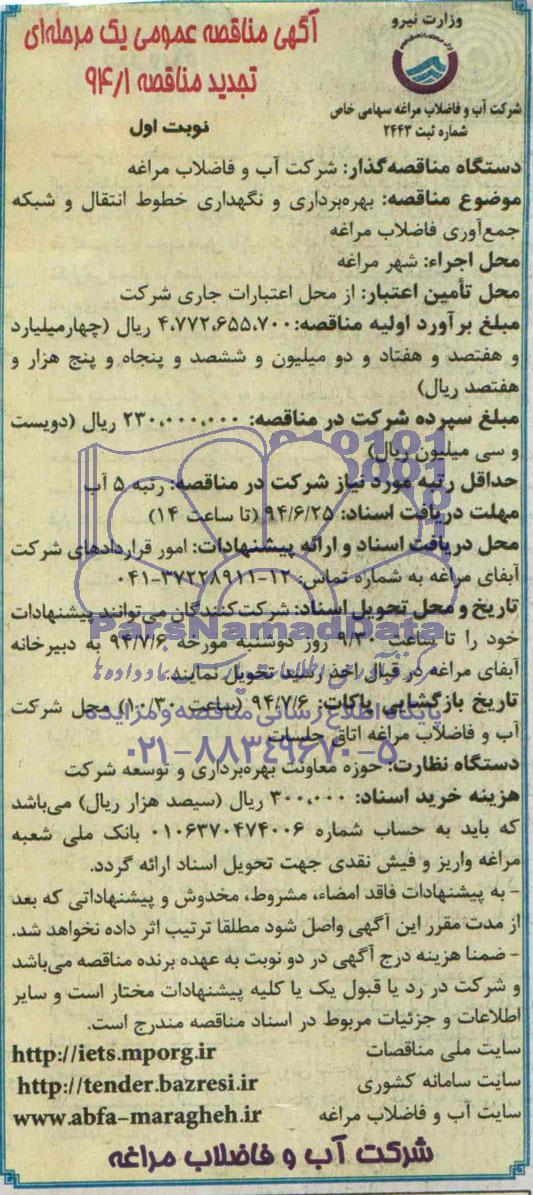 وزارت نیرو
شرکت آب و فاضلاب مراغه سهامی خاص
شماره ثبت ۲۴۴۳
آگهی مناقصه عمومی یک مرحله‌ای
تجدید مناقصه ۹۴/۱
نوبت اول
دستگاه مناقصه‌گذار: شرکت آب و فاضلاب مراغه
موضوع مناقصه: بهره‌برداری و نگهداری خطوط انتقال و شبکه
جمع‌آوری فاضلاب مراغه
محل اجراء: شهر مراغه
محل تأمین اعتبار: از محل اعتبارات جاری شرکت
مبلغ برآورد اولیه مناقصه: ۴،۷۷۲،۶۵۵،۷۰۰ ریال (چهارمیلیارد
و هفتصد و هفتاد و دو میلیون و ششصد و پنجاه و پنج هزار و
هفتصد ریال)
مبلغ سپرده شرکت در مناقصه: ۲۳۰،۰۰۰،۰۰۰ ریال (دویست
و سی میلیون ریال)
حداقل رتبه مورد نیاز شرکت در مناقصه: رتبه ۵ آب
مهلت دریافت اسناد: ۹۴/۶/۲۵ (تا ساعت ۱۴)
محل دریافت اسناد و ارائه پیشنهادات: امور قراردادهای شرکت
آبفای مراغه به شماره تماس: ۱۲-۳۷۲۲۸۹۱۱-۰۴۱
تاریخ و محل تحویل اسناد: شرکت‌کنندگان می‌توانند پیشنهادات
خود را تا ساعت ۹/۳۰ روز دوشنبه مورخه ۹۴/۷/۶ به دبیرخانه
آبفای مراغه در قبال اخذ رسید تحویل نمایند.
تاریخ بازگشایی پاکات: ۹۴/۷/۶ (ساعت ۱۰/۳۰) محل شرکت
آب و فاضلاب مراغه اتاق جلسات
دستگاه نظارت: حوزه معاونت بهره‌برداری و توسعه شرکت
هزینه خرید اسناد: ۳۰۰،۰۰۰ ریال (سیصد هزار ریال) می‌باشد
که باید به حساب شماره ۰۱۰۶۳۷۰۴۷۴۰۰۶ بانک ملی شعبه
مراغه واریز و فیش نقدی جهت تحویل اسناد ارائه گردد.
- به پیشنهادات فاقد امضاء، مشروط، مخدوش و پیشنهاداتی که بعد
از مدت مقرر این آگهی واصل شود مطلقا ترتیب اثر داده نخواهد شد.
- ضمنا هزینه درج آگهی در دو نوبت به عهده برنده مناقصه می‌باشد
و شرکت در رد یا قبول یک یا کلیه پیشنهادات مختار است و سایر
اطلاعات و جزئیات مربوط در اسناد مناقصه مندرج است.
سایت ملی مناقصات http://iets.mporg.ir
سایت سامانه کشوری http://tender.bazresi.ir
سایت آب و فاضلاب مراغه www.abfa-maragheh.ir
شرکت آب و فاضلاب مراغه
ParsNamadData
پایگاه اطلاع رسانی مناقصه و مزایده
۰۲۱-۸۸۳۴۹۶۷۰-۵